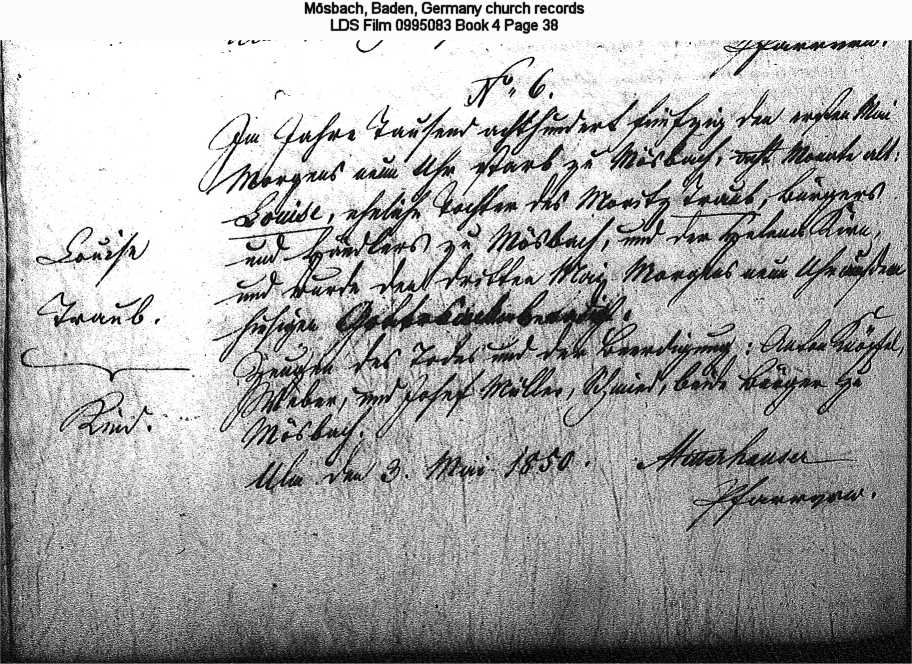 Mösbach, Baden, Germany church records
LDS Film 0995083 Book 4 Page 38
Pfarrverw.
No. 6.
Im Jahre Tausend achthundert fünfzig den ersten Mai
Morgens neun Uhr starb zu Mösbach, acht Monate alt:
Louise, eheliche Tochter des Moritz Traub, Bürgers
und Händlers zu Mösbach, und der Helena Kirn,
und wurde den dritten Mai Morgens neun Uhr auf dem
hiesigen beerdigt.
Zeugen des Todes und der Beerdigung: Anton Knöpfel,
Weber, und Josef Müller, Schmied, beide Bürger zu
Mösbach.
Ulm den 3. Mai 1850.
Pfarrverw.
Louise
Traub.
Kind.